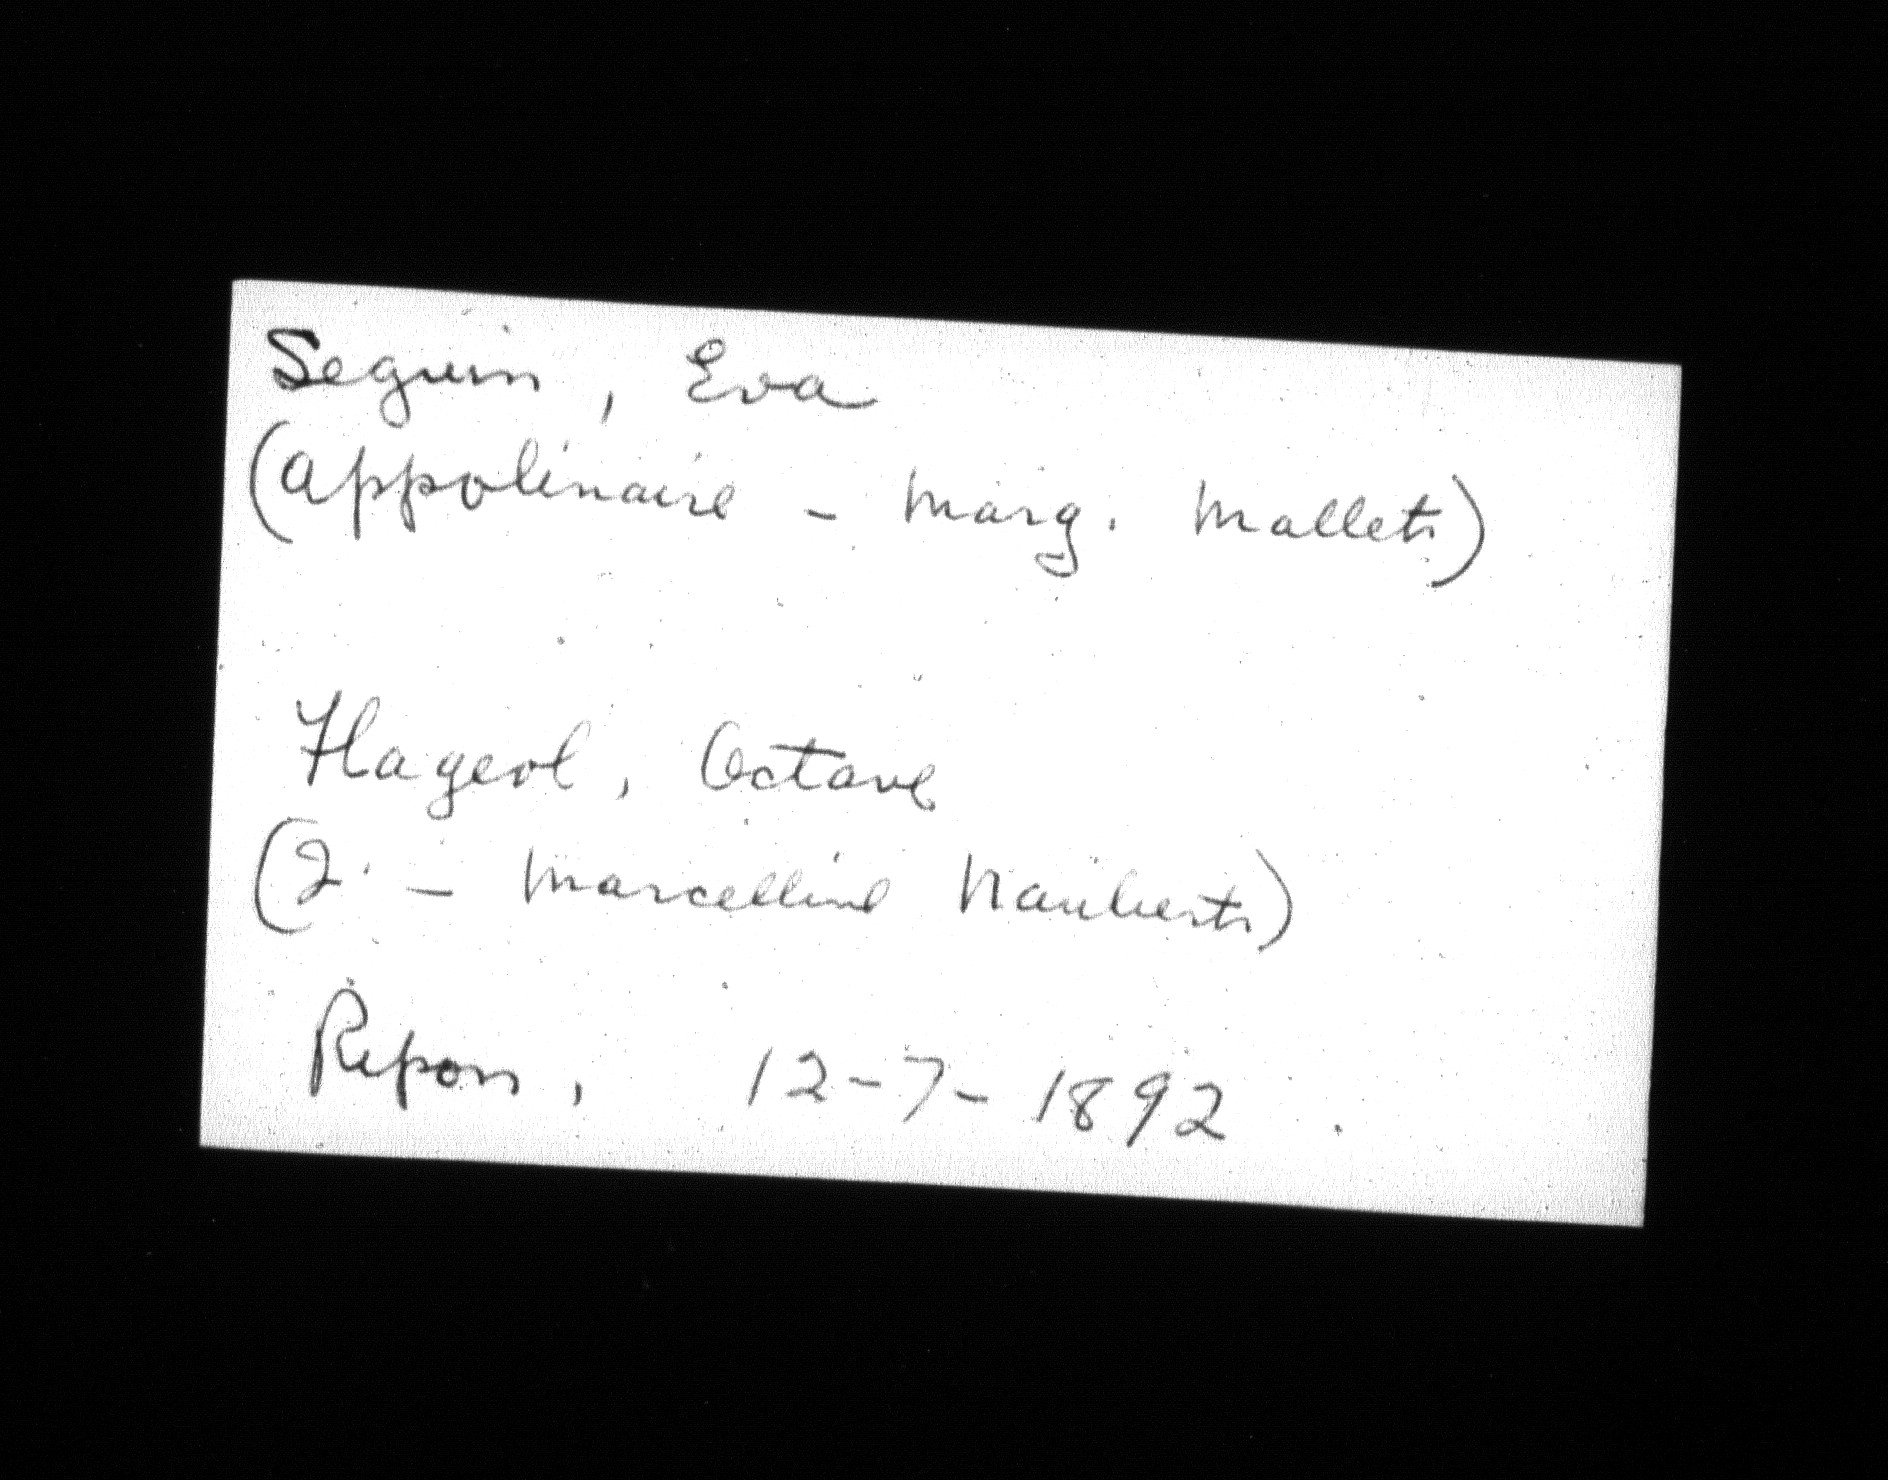 Seguin, Eva
(Appolinaire - Marg. Mallet)
Flageol, Octave
(J. - Marcelline Naubert)
Ripon, 12-7-1892.